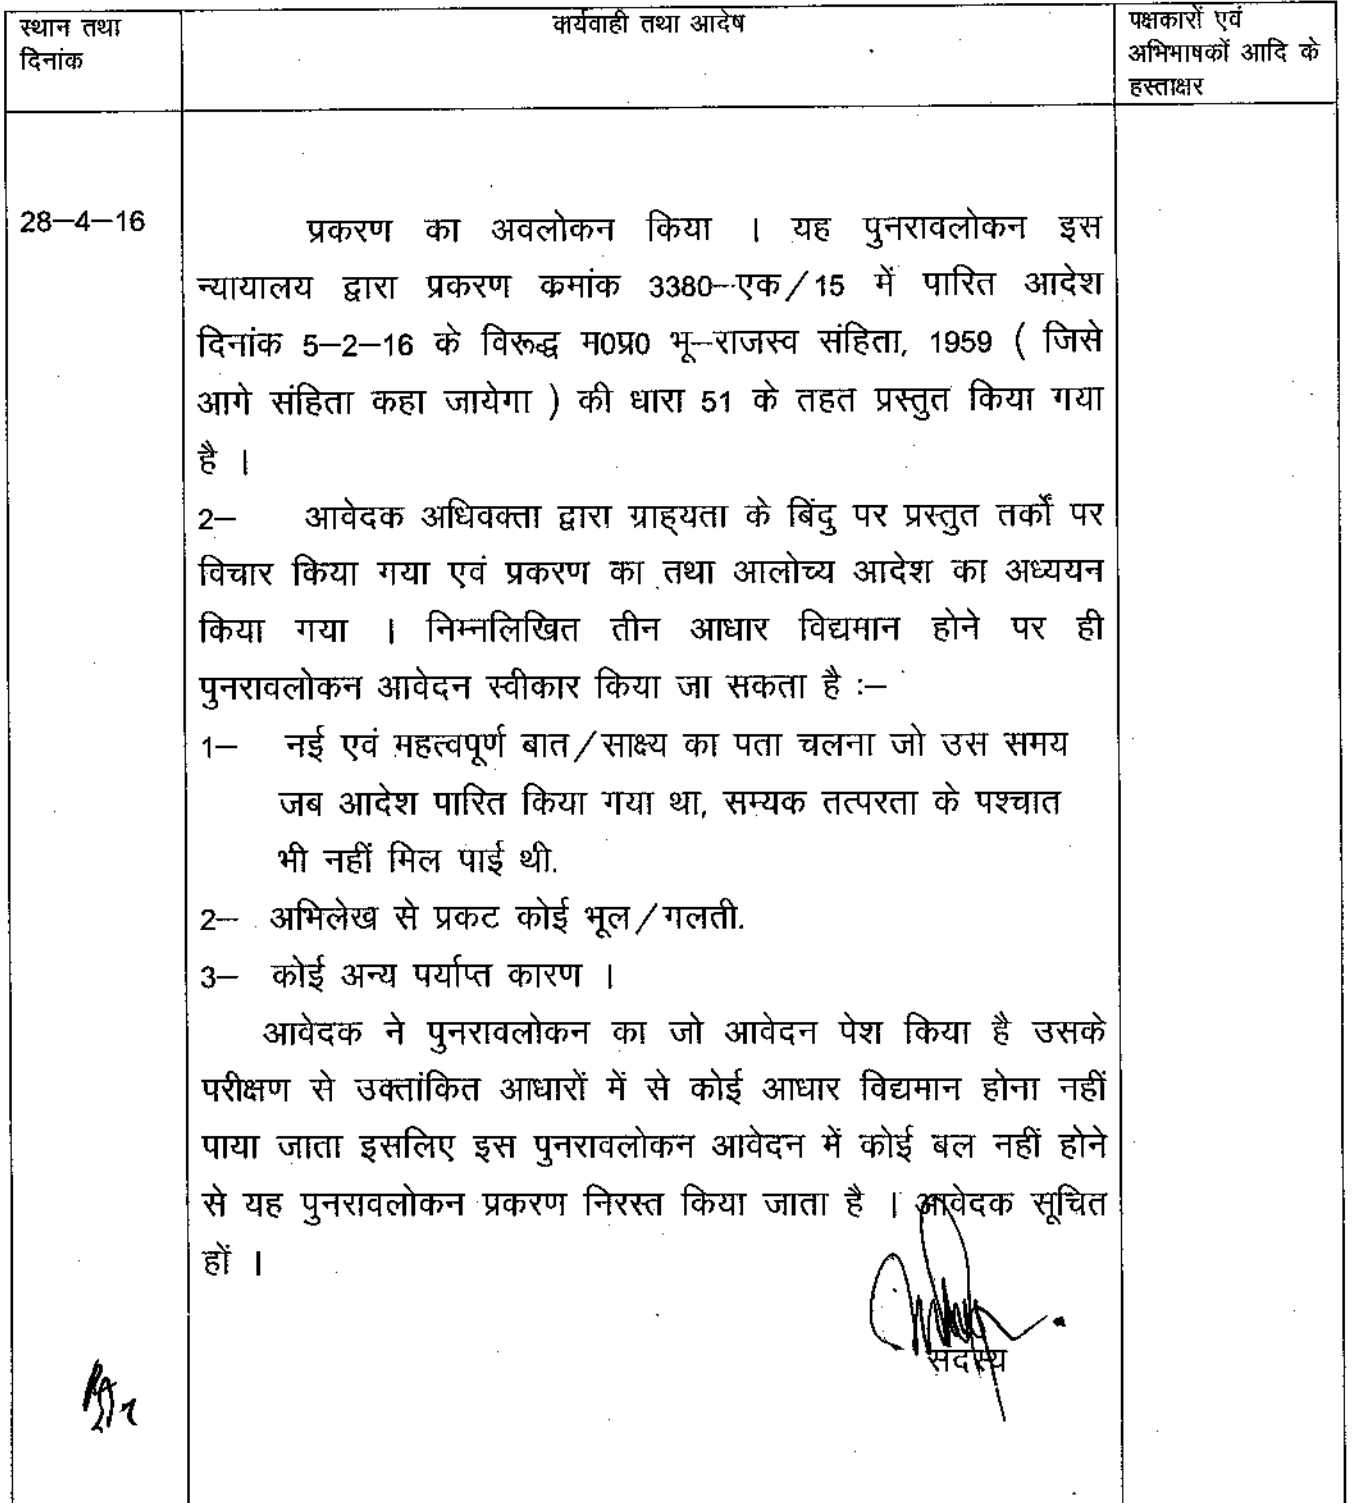 स्थान तथा
दिनांक
कार्यवाही तथा आदेष
पक्षकारों एवं
अभिभाषकों आदि के
हस्ताक्षर
28–4–16
प्रकरण का अवलोकन किया । यह पुनरावलोकन इस
न्यायालय द्वारा प्रकरण कमांक 3380–एक/15 में पारित आदेश
दिनांक 5–2–16 के विरूद्ध म0प्र0 भू–राजस्व संहिता, 1959 ( जिसे
आगे संहिता कहा जायेगा ) की धारा 51 के तहत प्रस्तुत किया गया
है ।
2– आवेदक अधिवक्ता द्वारा ग्राह्यता के बिंदु पर प्रस्तुत तर्कों पर
विचार किया गया एवं प्रकरण का तथा आलोच्य आदेश का अध्ययन
किया गया । निम्नलिखित तीन आधार विद्यमान होने पर ही
पुनरावलोकन आवेदन स्वीकार किया जा सकता है :–
1– नई एवं महत्वपूर्ण बात/साक्ष्य का पता चलना जो उस समय
जब आदेश पारित किया गया था, सम्यक तत्परता के पश्चात
भी नहीं मिल पाई थी.
2– अभिलेख से प्रकट कोई भूल/गलती.
3– कोई अन्य पर्याप्त कारण ।
आवेदक ने पुनरावलोकन का जो आवेदन पेश किया है उसके
परीक्षण से उक्तांकित आधारों में से कोई आधार विद्यमान होना नहीं
पाया जाता इसलिए इस पुनरावलोकन आवेदन में कोई बल नहीं होने
से यह पुनरावलोकन प्रकरण निरस्त किया जाता है । आवेदक सूचित
हों ।
सदस्य